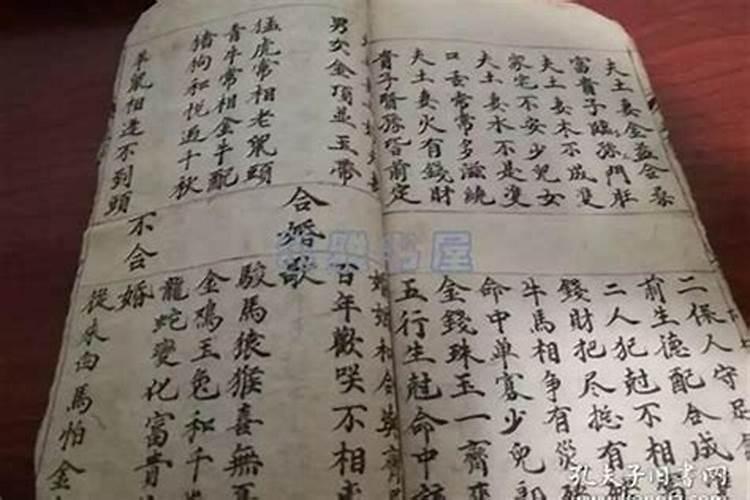 夫土妻金益合
富貴子臨孫門莊
夫土妻木不成雙
家宅不安少兒女
夫土妻水不是雙
口舌常常多滋繞
夫土妻火有錢財
貴子賢孫皆前定
二保人守足
前生德配合成
二人犯尅不相
錢財把尽挺有
牛馬相争有災
命中单寡少兒郎
金錢珠玉一齊來
五行生尅命中該
婚姻和合英齊
男女金頂並玉帶
百年歡咲不相
合婚歌
猛虎常相老鼠頭
駿馬猿猴喜無
青牛常相金牛配
金鸡玉兔和千
猪狗和悦过千秋
龍蛇變化富貴
不合婚
羊鼠相逢不到頭
從来白馬怕金
孔夫子旧书网